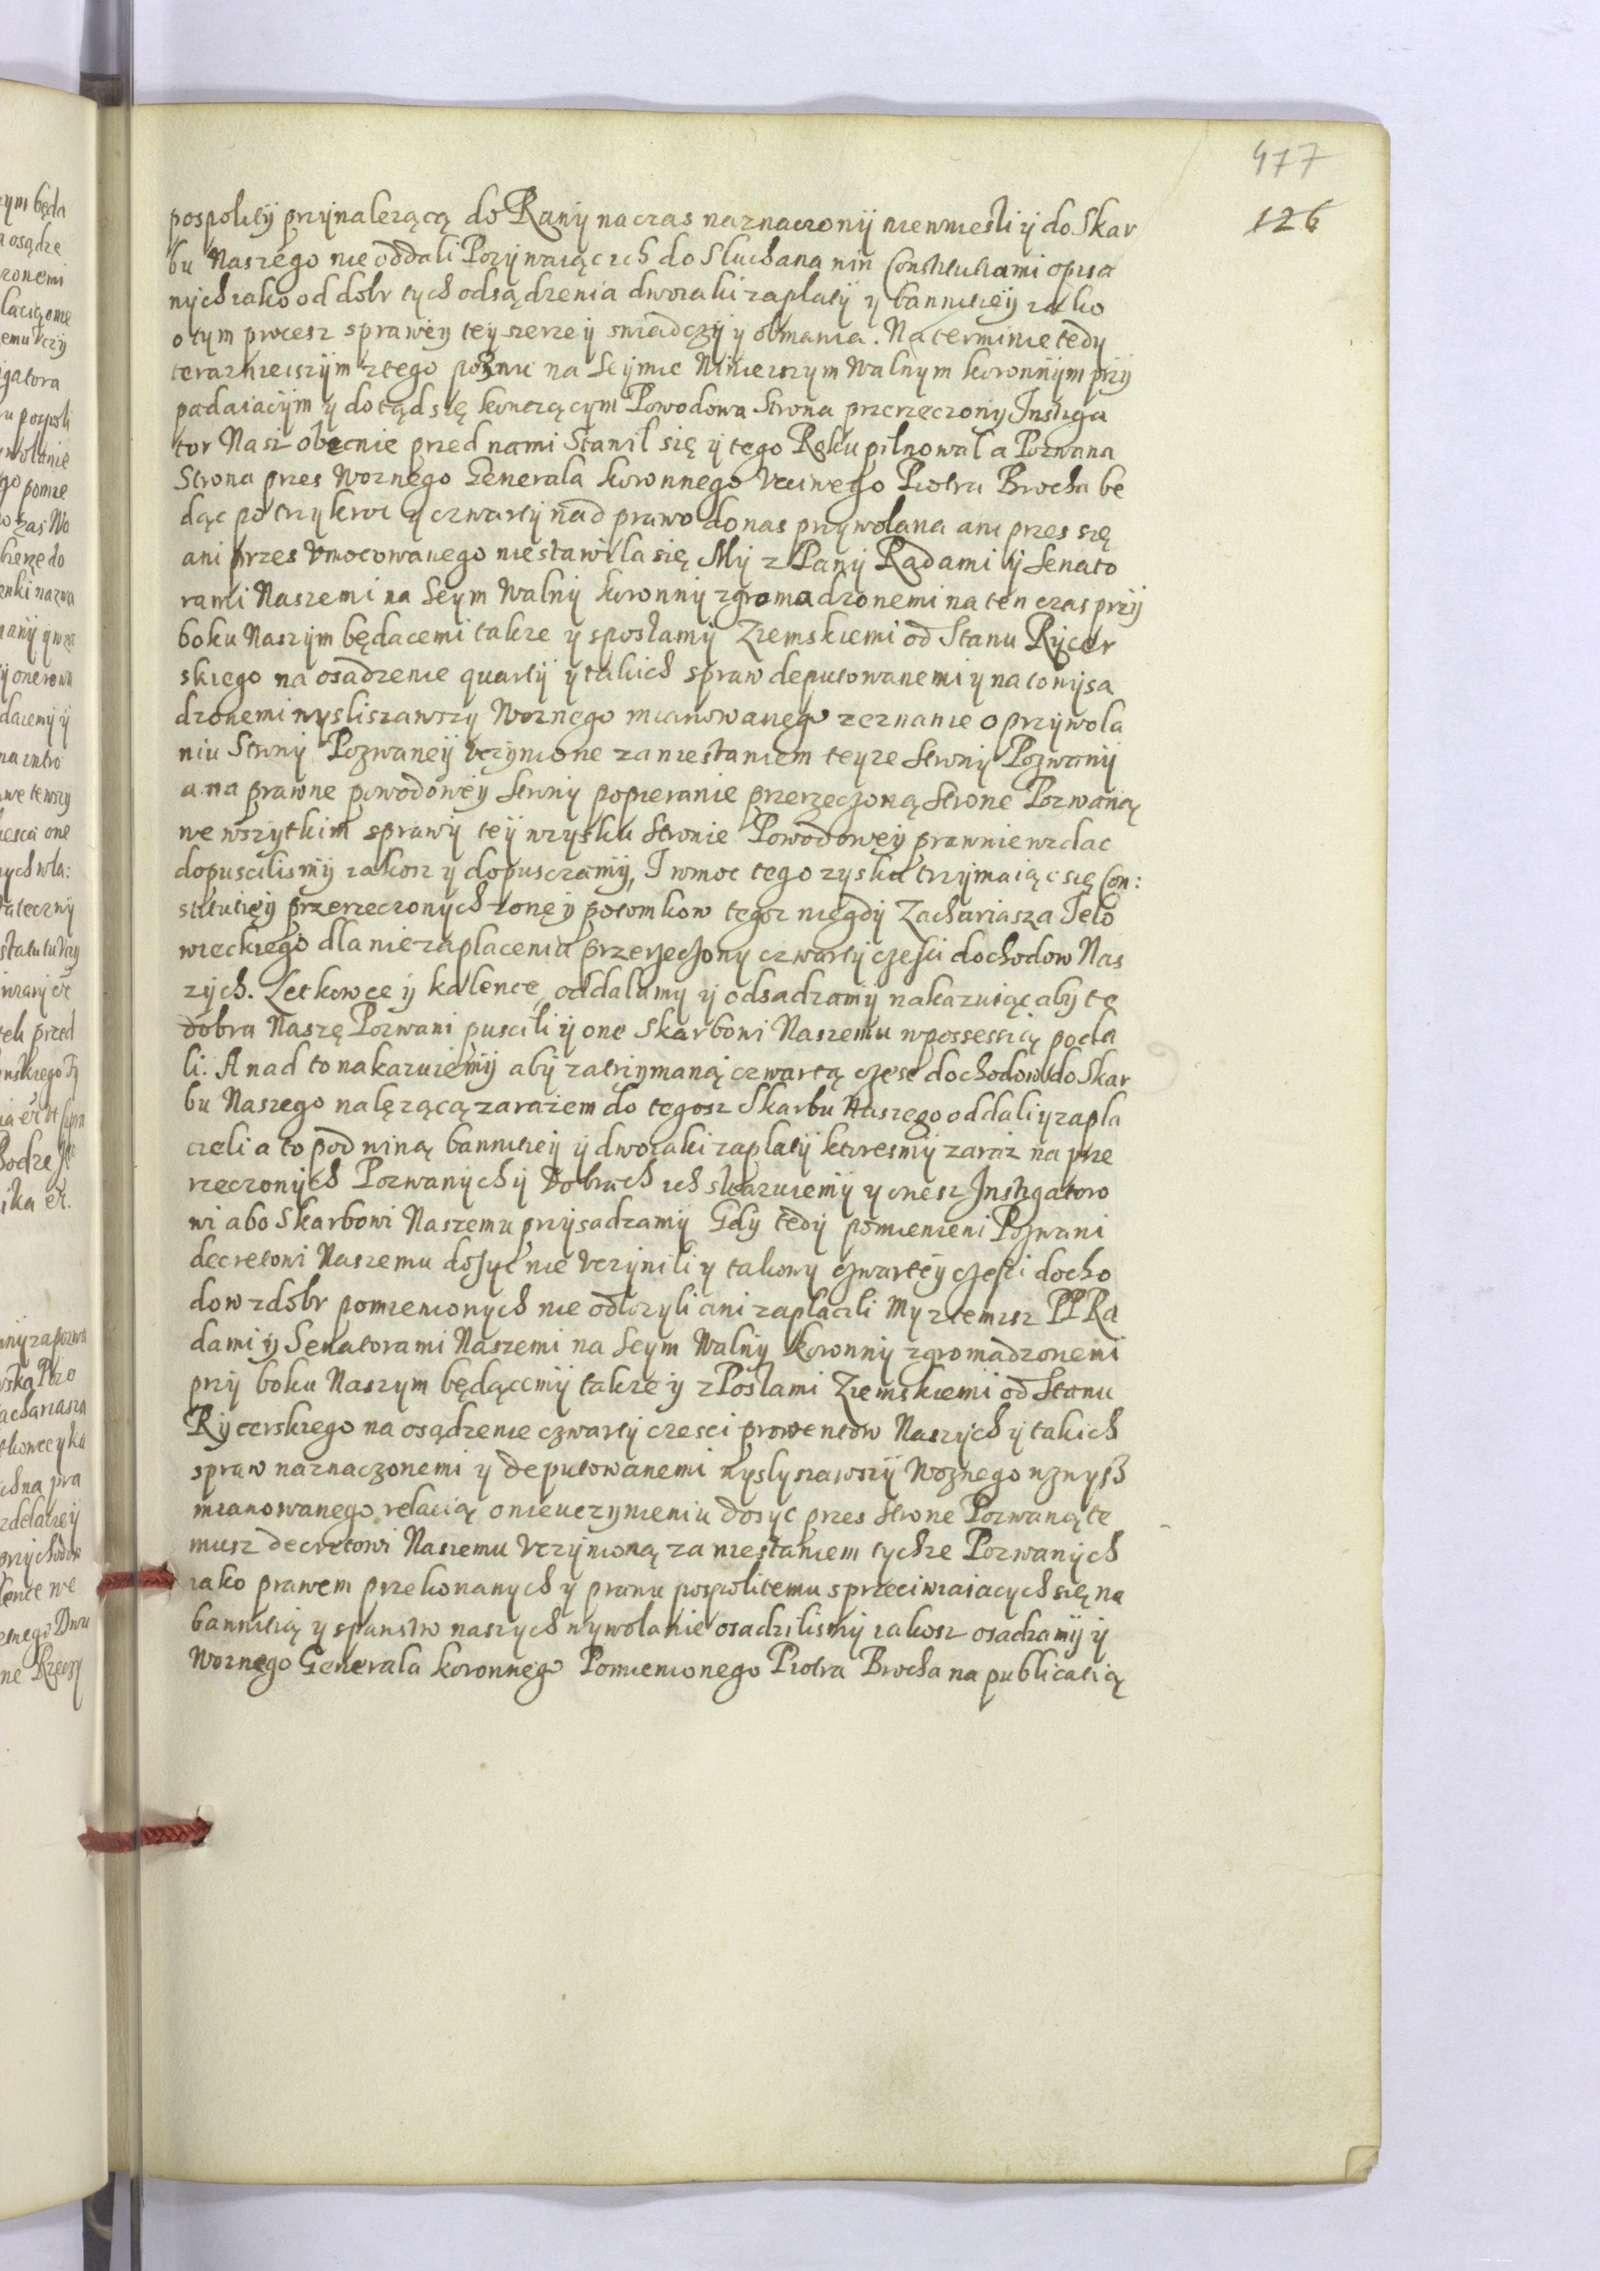 477
126
pospolity przynalezącą do Rawy na czas naznaczony nie wniesli y do Skar
bu Naszego nie oddali Pozywaiąc ich do Sluchania win Constitutiami opisa
nych iako od dobr tych odsądzenia dwoiaki zaplaty y banniciey iako
o tym proces sprawey tey szerzey swiadczy y obmawia. Na terminie tedy
terazniejszym z tego pozwu na Seymie Ninieiszym Walnym koronnym przy
padaiacym y dotąd się konczącym Powodowa Strona przerzeczony Instiga
tor Nasz obecnie przed nami Stawil się y tego Roku pilnowal a Pozwana
Strona przes Woznego Generala koronnego Vcciwego Piotra Brocha be
dąc po trzykroc y czwarty nad prawo do nas przywolana ani przes się
ani przes Vmocowanego nie stawila się My z Pany Radami y Senato
rami Naszemi na Seym Walny koronny zgromadzonemi na ten czas przy
boku Naszym będacemi takze y sposlamy Ziemskiemi od Stanu Rycer
skiego na osadzenie quarty y takich spraw deputowanemi y na to wysa
dzonemi wysliszawszy Woznego mianowanego zeznanie o przywola
niu Strony Pozwaney vczynione za niestaniem teyze Strony Pozwany
a na prawne powodowey Strony popieranie przerzeczoną Strone Pozwaną
we wszytkim sprawy tey wzysku Stronie Powodowey prawnie wzdac
dopuscilismy iakosz y dopusczamy, I w moc tego zysku trzymaiąc się Con:
stitutiey przerzeczonych zonę y potomkow tegoz niegdy Zachariasza Ieło
wieckiego dla niezaplacenia przerzeczony czwarty częsci dochodow Nas
zych. Letkowce y kalence, oddalamy y odsadzamy nakazuiąc aby te
dobra Naszę Pozwani puscili y one Skarbowi Naszemu w possessią poda
li. A nad to nakazuiemy aby zatrzymaną czwartą częsc dochodow do Skar
bu Naszego nalęzącą zarazem do tegosz Skarbu Naszego oddali y zapla
cieli a to pod winą banniciey y dwoiaki zaplaty ktoresmy zaraz na prze
rzeczonych Pozwanych y Dobrach ich skazuiemy y onesz Instigatoro
wi abo Skarbowi Naszemu przysadzamy Gdy tedy pomienieni Pozwani
decretowi Naszemu dosyc nie vczynili y takowy czwartey częsci docho
dow z dobr pomienionych nie odliczyli ani zaplacili My z temisz PP Ra
dami y Senatorami Naszemi na Seym Walny koronny zgromadzonemi
przy boku Naszym będącemy takze y z Poslami Ziemskiemi od Stanu
Rycerskiego na osądzenie czwarty czesci prowentow Naszych y takich
spraw naznaczonemi y deputowanemi wyslyszawszy Woznego wznysz
mianowanego relacią o nieuczynieniu dosyc przes Strone Pozwaną te
musz decretowi Naszemu vczynioną za niestaniem tychze Pozwanych
iako prawem przekonanych y prawu pospolitemu sprzeciwiaiacych się na
bannicią y z panstw naszych wywolanie osadzilismy iakosz osadzamy y
Woznego Generala koronnego Pomienionego Piotra Brocha na publicatią